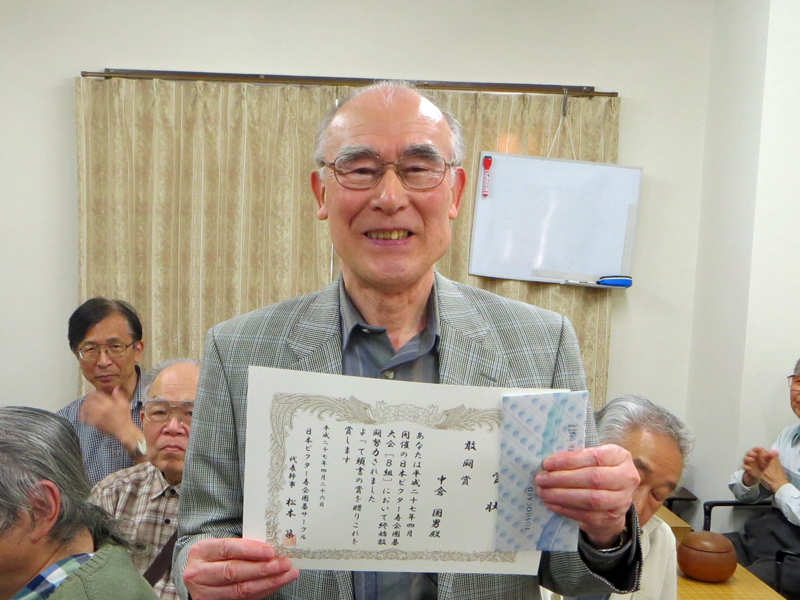 賞状
敢闘賞
中倉 国男殿
あなたは平成二十七年四月
開催の日本ビクター寿会囲碁
大会「B組」において終始敢
闘努力されました
よって頭書の賞を贈りこれを
賞します
平成二十七年四月二十六日
日本ビクター寿会囲碁サークル
代表幹事 松本